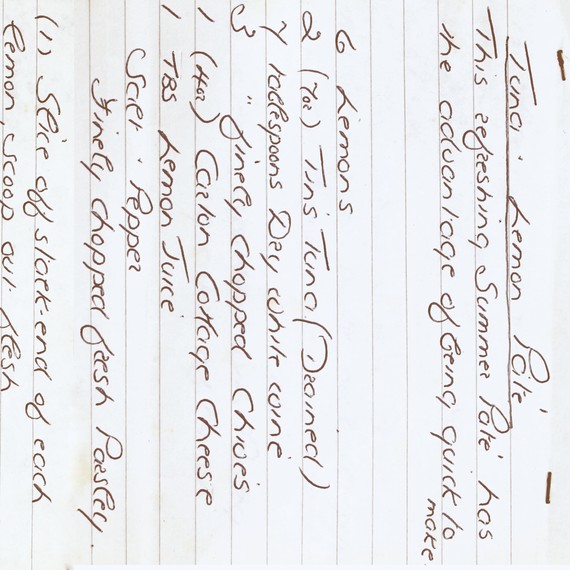 Tuna · Lemon Pâté
This refreshing Summer Pate' has
the advantage of being quick to
make
6 Lemons
2 (7oz) Tins Tuna (Drained)
4 Tablespoons Dry white wine
3 " finely chopped Chives
1 (4oz) Carton Cottage Cheese
1 TBS Lemon Juice
Salt · Pepper
Finely chopped fresh Parsley.
(1) Slice of stalk-end of each
lemon, scoop out flesh